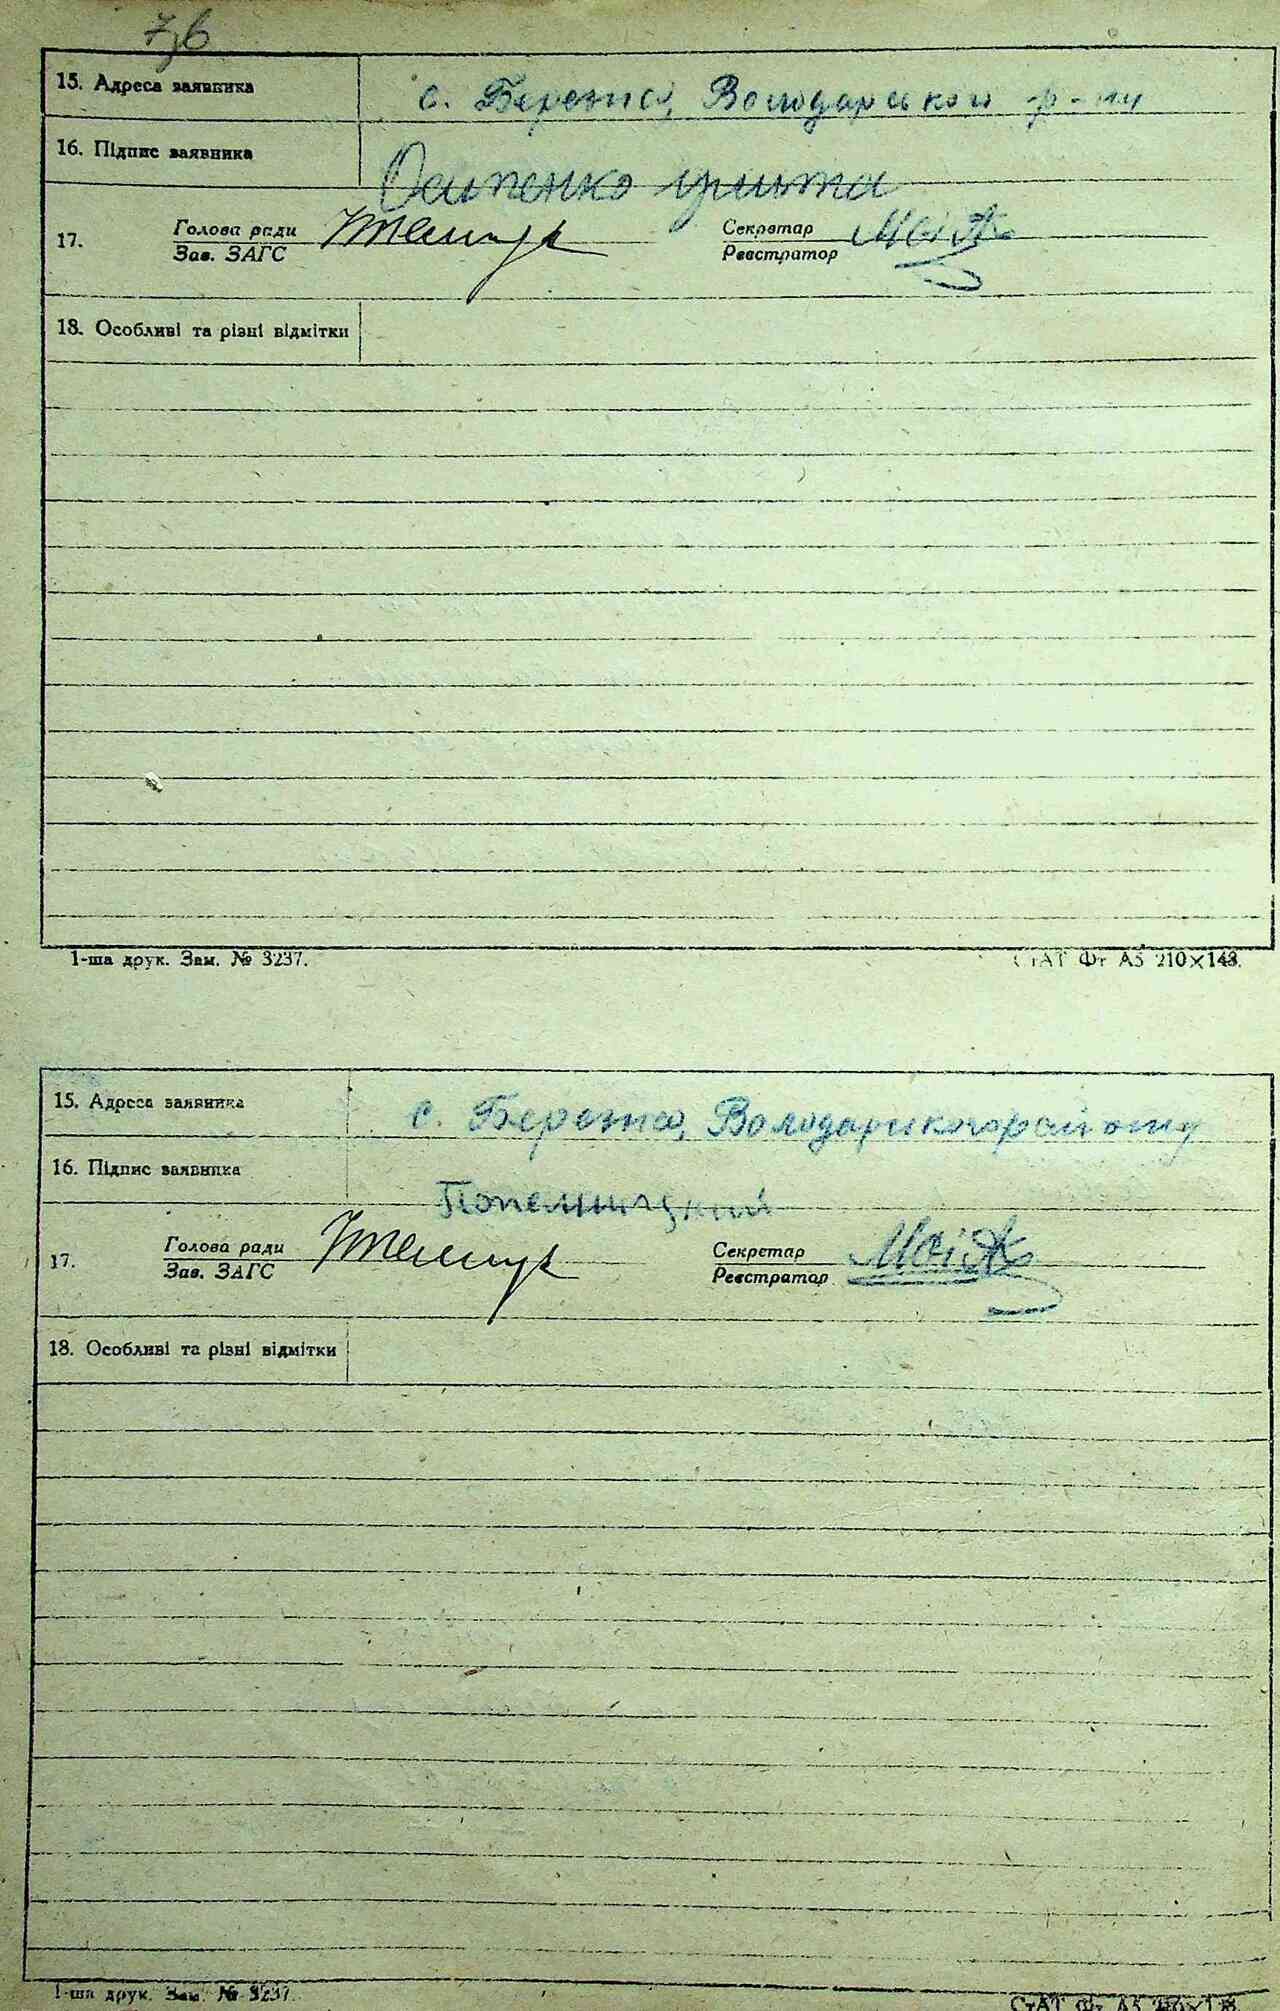 7зв
15. Адреса заявника с. Березна, Володарського р-ну
16. Підпис заявника Осипенко
17. Голова ради Секретар
Зав. ЗАГС Реєстратор
18. Особливі та різні відмітки
1-ша друк. Зам. № 3237. СтАТ Фт А5 210×148.
15. Адреса заявника с. Березна, Володарського району
16. Підпис заявника
Попельницкий
17. Голова ради Секретар
Зав. ЗАГС Реєстратор
18. Особливі та різні відмітки
1-ша друк. Зам. № 3237. СтАТ Фт А5